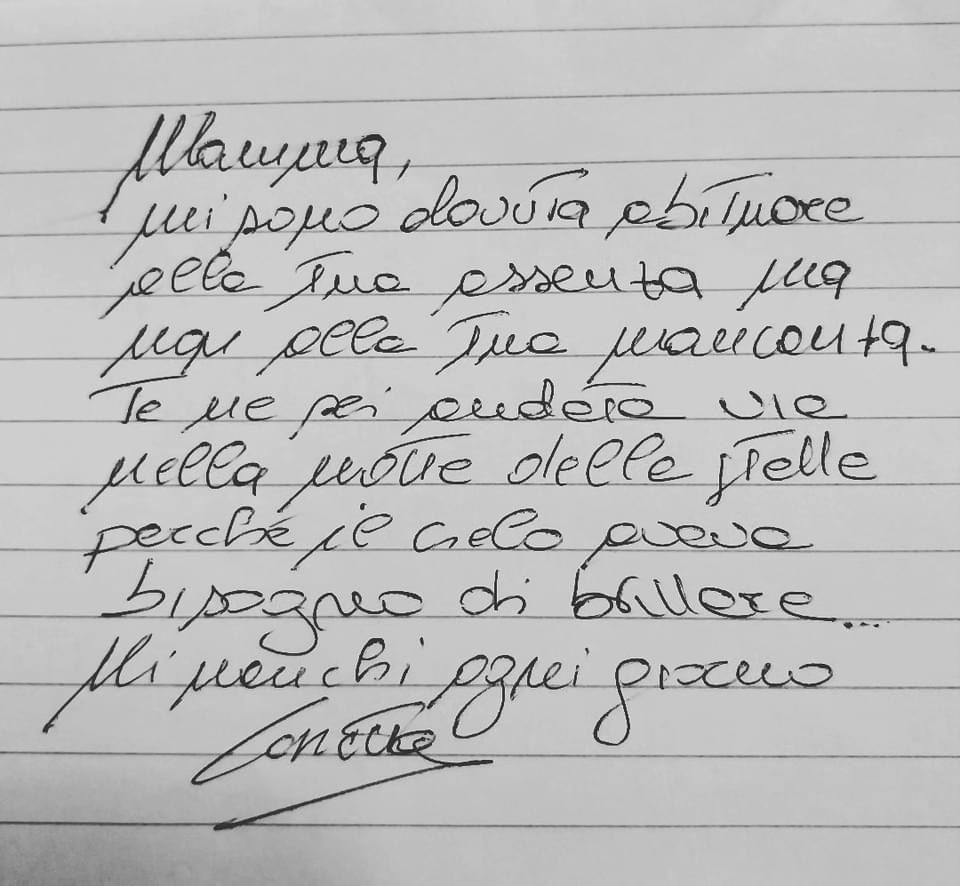 Mamma,
mi sono dovuta abituare
alla tua assenza ma
mai alla tua mancanza.
Te ne sei andata via
nella notte delle stelle
perché il cielo aveva
bisogno di brillare...
Mi manchi ogni giorno